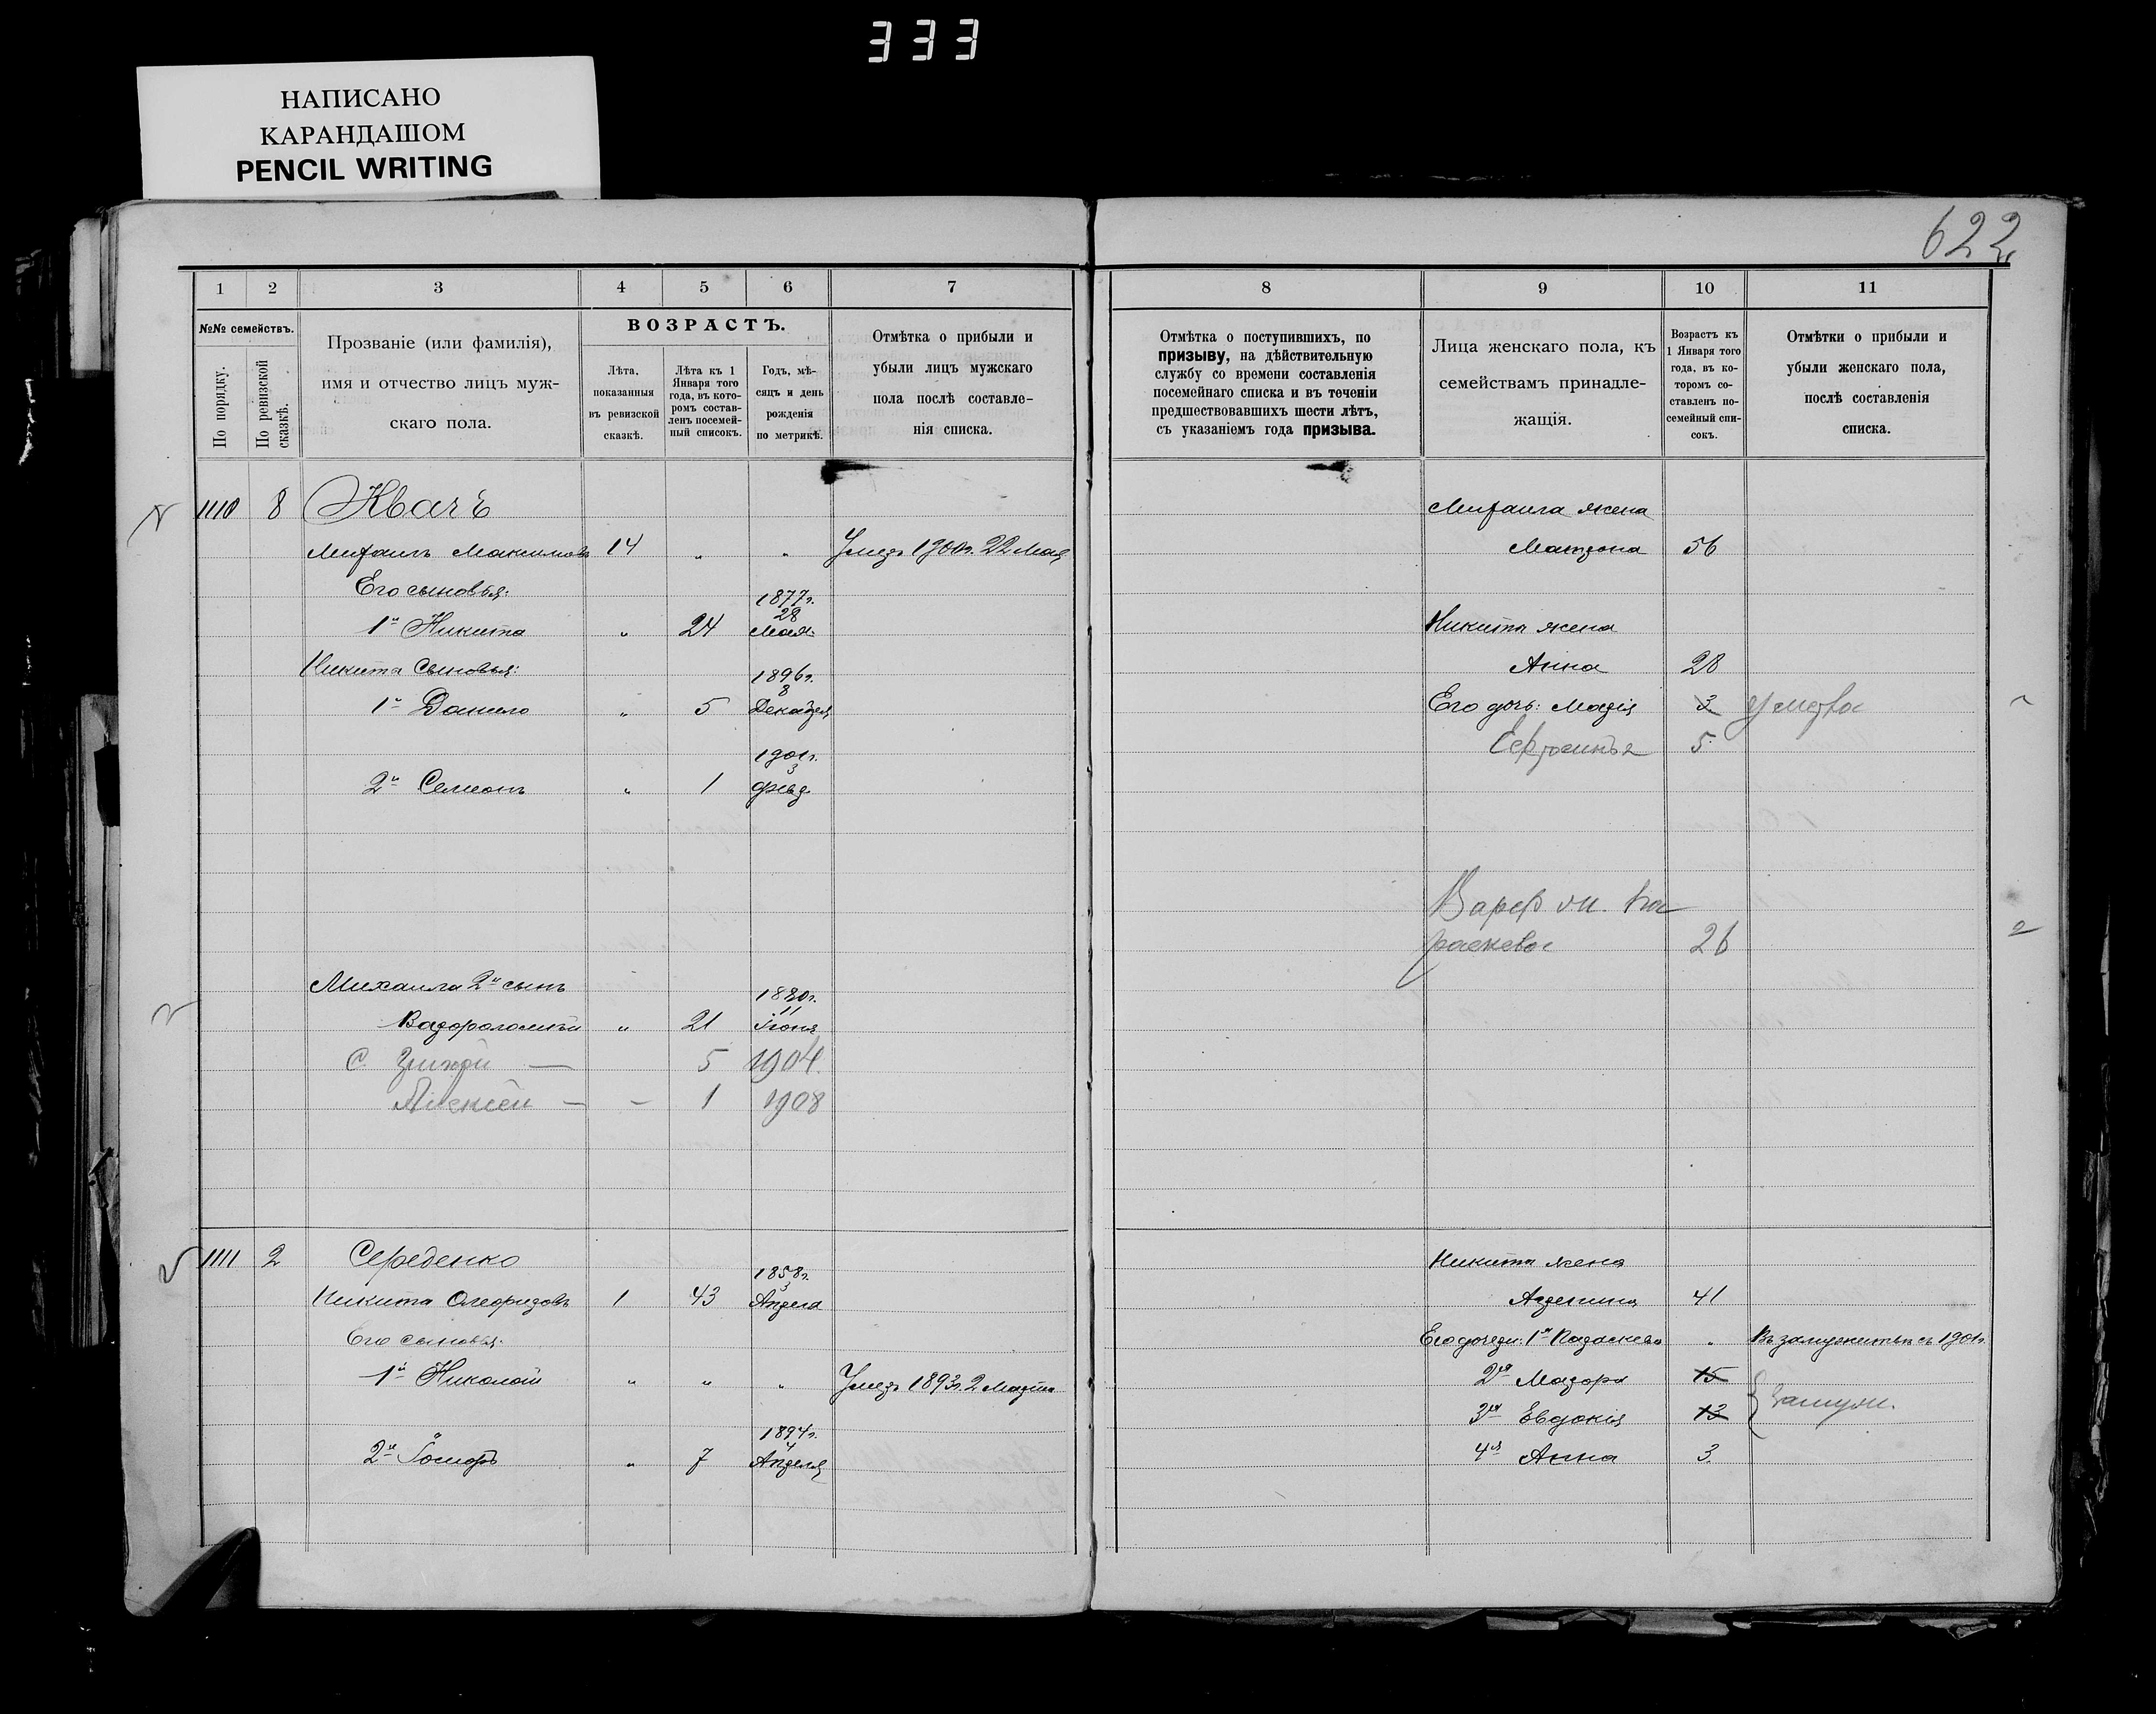 333
НАПИСАНО
КАРАНДАШОМ
PENCIL WRITING
622
1 2 3 4 5 6 7 8 9 10 11
№№ семействъ.
По порядку.
По ревизской сказкѣ.
Прозваніе (или фамилія),
имя и отчество лицъ муж-
скаго пола.
ВОЗРАСТЪ.
Лѣта,
показанныя
въ ревизской
сказкѣ.
Лѣта къ 1
Января того
года, въ кото-
ромъ состав-
ленъ посемей-
ный списокъ.
Годъ, мѣ-
сяцъ и день
рожденія
по метрикѣ.
Отмѣтка о прибыли и
убыли лицъ мужскаго
пола послѣ составле-
нія списка.
Отмѣтка о поступившихъ, по
призыву, на дѣйствительную
службу со времени составленія
посемейнаго списка и въ теченіи
предшествовавшихъ шести лѣтъ,
съ указаніемъ года призыва.
Лица женскаго пола, къ
семействамъ принадле-
жащія.
Возрастъ къ
1 Января того
года, въ ко-
торомъ со-
ставленъ по-
семейный спи-
сокъ.
Отмѣтки о прибыли и
убыли женскаго пола,
послѣ составленія
списка.
1110 8 Квачъ
Михаилъ Максимовъ 14 " " Умеръ 1900г. 22 Мая
Его сыновья:
1877г.
28
1й Никита " 24 Мая
Никита Сыновья:
1896г.
8
1й Данило " 5 Декабря
1901г.
3
2й Семіонъ " 1 Февр
Михаила 2й сынъ
1880г.
11
Варфоломій " 21 Іюня
С. 5 1904.
Алексѣй — — 1 1908
Михаила жена
Матрона 56
Никита жена
Анна 28
Его дочь: Марія 3 умерла
Ефросинья 5
Варф. ж. Па
раскева 26
1111 2 Середенко
1858г.
3
Никита Онофріевъ 1 43 Апреля
Его сыновья:
1й Николай " " " Умеръ 1893г. 2 Марта
1894г.
4
2й " 7 Апреля
Никита жена
41
Его дочери: 1я Параскева " Въ замужитьи съ 1901г.
2я Мавра 15
3я Евдокія 13 замуж.
4я Анна 3